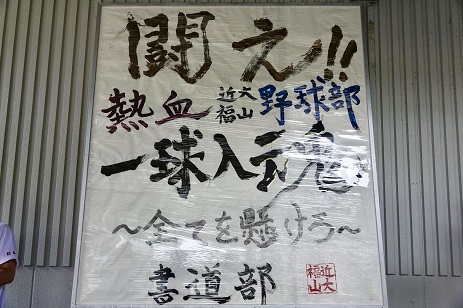 闘え!!
熱血 近大福山 野球部
一球入魂
〜全てを懸けろ〜
書道部
近大福山